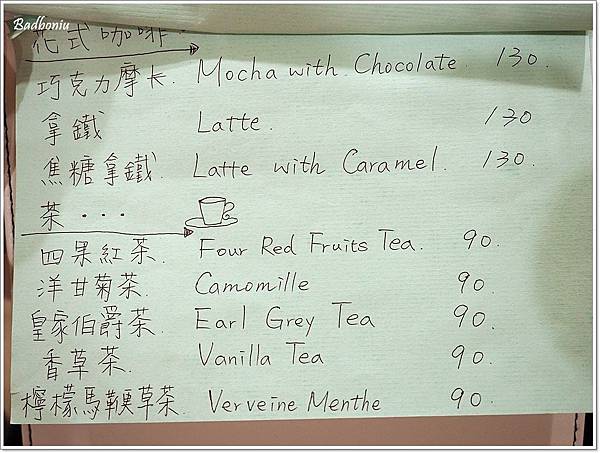 Badboniu
花式咖啡.
巧克力摩卡. Mocha with Chocolate. 130.
拿鐵 Latte. 130
焦糖拿鐵. Latte with Caramel. 130.
茶...
四果紅茶. Four Red Fruits Tea. 90.
洋甘菊茶. Camomille 90.
皇家伯爵茶. Earl Grey Tea 90.
香草茶. Vanilla Tea 90.
檸檬馬鞭草茶. Verveine Menthe 90.